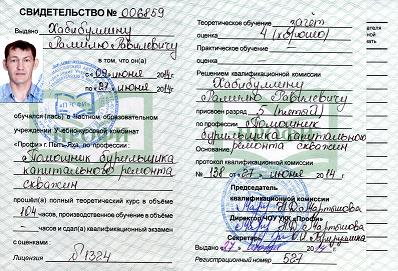 СВИДЕТЕЛЬСТВО № 006859
Выдано Хабибуллину
Рамилю Равилевичу
в том, что он(а)
с «09» июня 2014г
по «27» июня 2014г.
обучался (лась) в Частном образовательном
учреждении Учебно-курсовой комбинат
«Профи» г. Пыть-Яха, по профессии:
Помощник бурильщика
капитального ремонта
скважин
прошёл(а) полный теоретический курс в объёме
104 часов, производственное обучение в объёме
— часов и сдал(а) квалификационный экзамен
с оценками.
Лицензия 1324
Теоретическое обучение зачёт
оценка 4 (хорошо)
оценка
Решением квалификационной комиссии
Хабибуллину
Рамилю Равилевичу
присвоен разряд 5 (пятый)
по профессии «Помощник
бурильщика капитального
Основание ремонта скважин
протокол квалификационной комиссии
№ 138 от «27» июня 2014 г.
Председатель
квалификационной комиссии
Мартышова
Директор ЧОУ УКК «Профи»
Мартышова
Секретарь
Выдано 27 2014г
Регистрационный номер 587